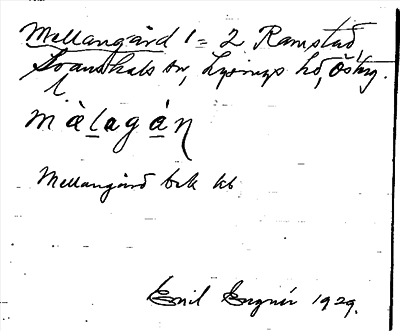 Mellangård 1 = 2 Ramstad,
Svanshals sn, Lysings hd, Östg.
l
màlagáɳ
Mellangård
Emil 1929.